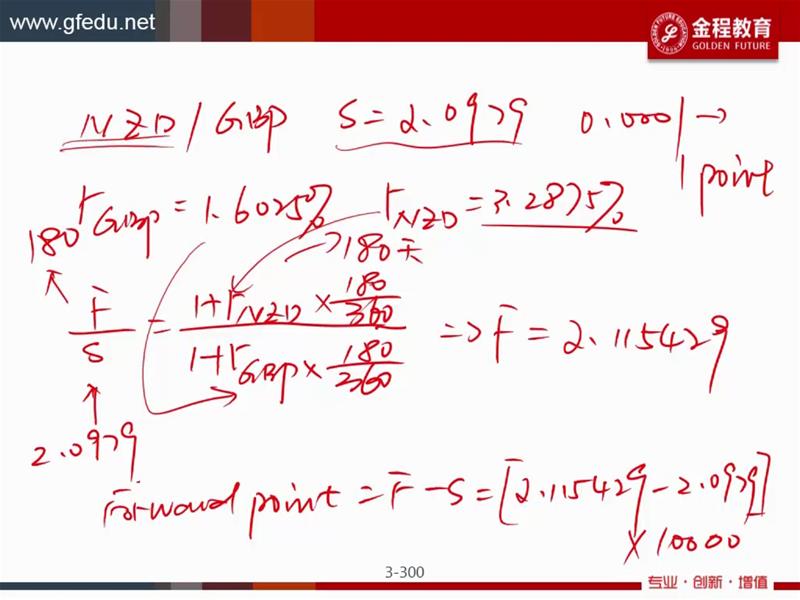 www.gfedu.net
金程教育
GOLDEN FUTURE
NZD / GBP S = 2.0979 0.0001 → 1 point
r GBP = 1.6025% r NZD = 3.2875%
180 → 180天
F/S = (1 + r NZD × 180/360) / (1 + r GBP × 180/360) ⇒ F = 2.115429
2.0979
Forward point = F - S = [2.115429 - 2.0979]
× 10000
3-300
专业·创新·增值